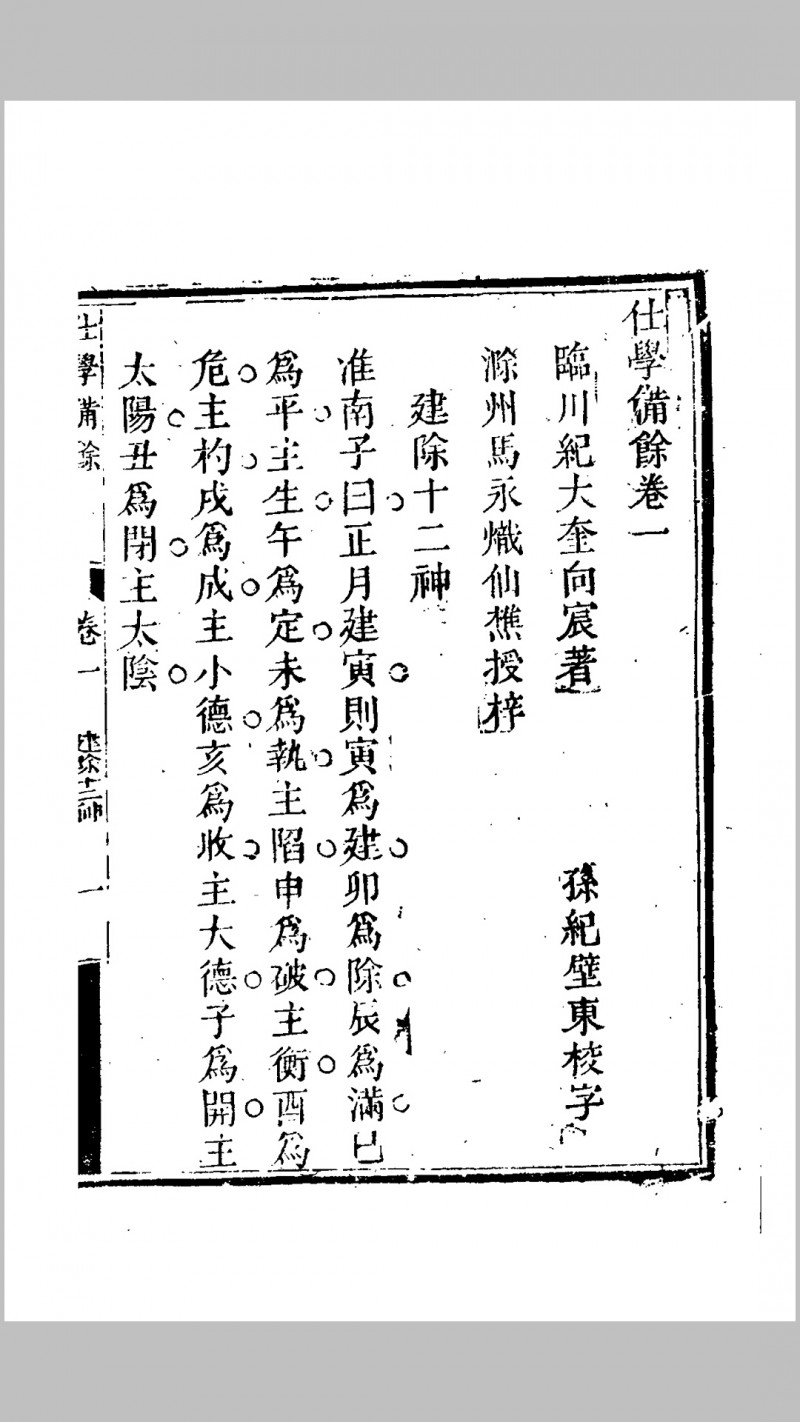 仕學備餘卷一
臨川紀大奎向宸著 孫紀壁東校字
滁州馬永熾仙樵授梓
建除十二神
淮南子曰正月建寅則寅爲建卯爲除辰爲滿巳
爲平主生午爲定未爲執主陷申爲破主衡酉爲
危主杓戌爲成主小德亥爲收主大德子爲開主
太陽丑爲閉主太陰
仕學備餘 卷一 建除十二神 一